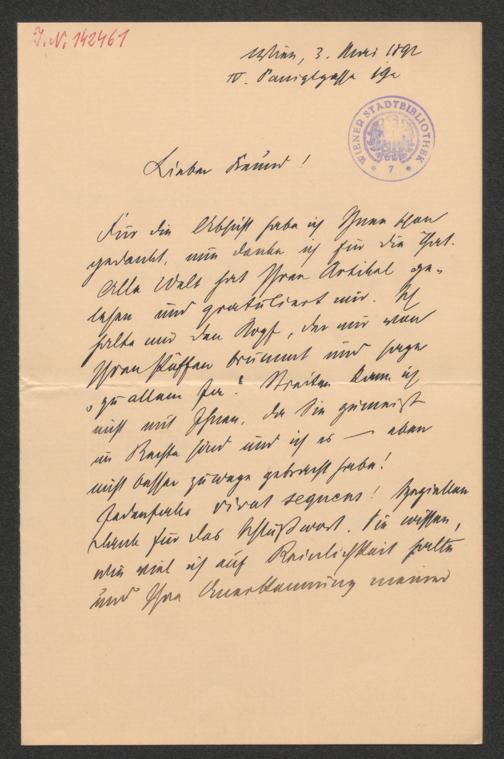 J.N. 142461
Wien, 3. Mai 1892
IV. Paniglgasse 19a
WIENER STADTBIBLIOTHEK
7
Lieber Freund!
Für die Absicht habe ich Ihnen schon
gedankt, nun danke ich für die That.
Alle Welt hat Ihren Artikel ge-
lesen und gratuliert mir. Ich
halte mir den Kopf, der mir von
Ihren Püffen brummt und sage
"zu allem Ja". Streiten kann ich
nicht mit Ihnen, da Sie zumeist
im Rechte sind und ich es — eben
nicht besser zuwege gebracht habe!
Jedenfalls vivat sequens! Speziellen
Dank für das Schlußwort. Sie wissen,
wie viel ich auf Reinlichkeit halte
und Ihre Anerkennung meiner